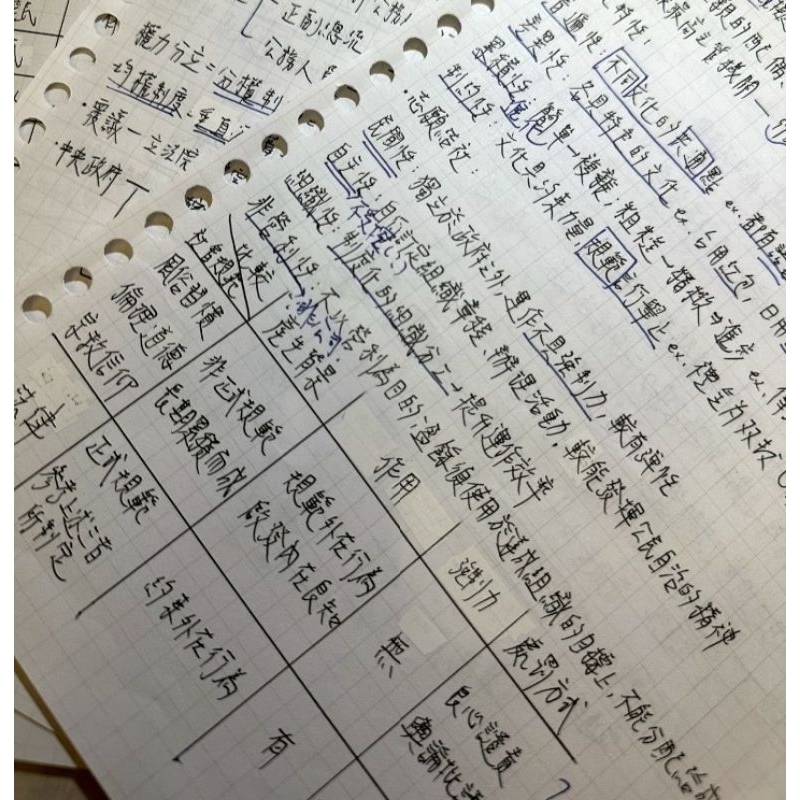 權力分立=分權制
均權制度-垂直
·覆議-立法院
·中央政府
正副總統
普遍性:不同文化的共通點 ex.都有
差異性:各具特色的文化 ex.台用立包,日用
累積性:進化 簡單→複雜,粗糙→精緻⇒進步 ex.
制約性:文化具約束力量 規範言行舉止 ex.
·志願結社:
民間性:獨立於政府之外,運作不具強制力,較有彈性
自主性:自行訂定組織章程、辦理活動,較能發揮公民自治的精神
組織性:制度化的組織分工→提升運作效率
非營利性:不以營利為目的,盈餘須使用於達成組織的目標上,不能分配
比較 社會規範
產生背景
作用
強制力
處罰方式
風俗習慣
倫理道德
宗教信仰
非正式規範
長期累積而成
規範外在行為
啟發內在良知
無
良心譴責
輿論批評
法律
正式規範
參考上述三者
所制定
約束外在行為
有